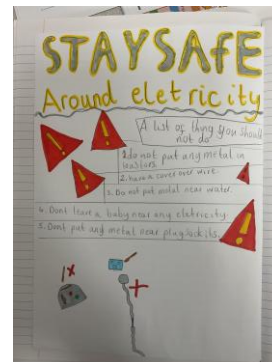 STAY SAFE
Around eletricity
A lot of thing you should
not do
1. do not put any metal in
2. have a cover over wire.
3. Do not put metal near water.
4. Dont leave a baby near any eletricity.
5. Dont put any metal near plug sockits.